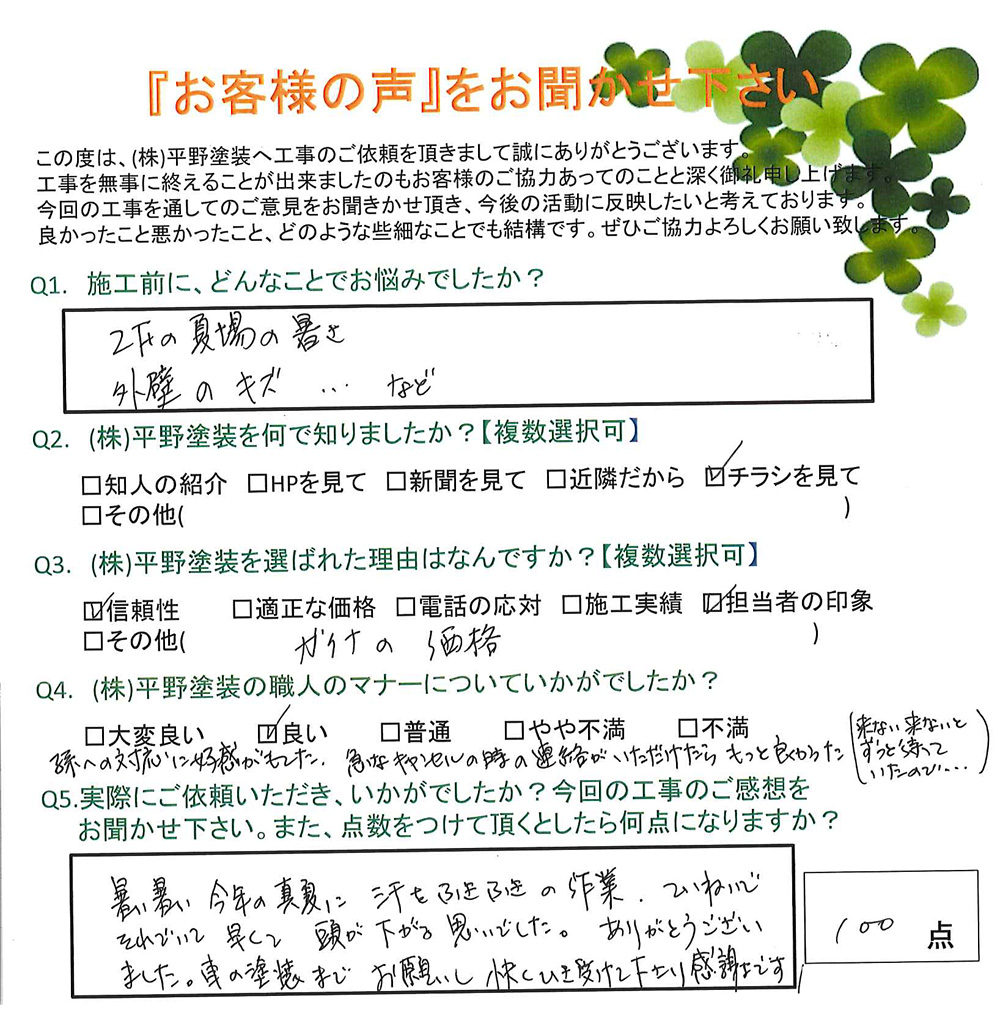 『お客様の声』をお聞かせ下さい
この度は、(株)平野塗装へ工事のご依頼を頂きまして誠にありがとうございます。
工事を無事に終えることが出来ましたのもお客様のご協力あってのことと深く御礼申し上げます。
今回の工事を通してのご意見をお聞きかせ頂き、今後の活動に反映したいと考えております。
良かったこと悪かったこと、どのような些細なことでも結構です。ぜひご協力よろしくお願い致します。
Q1. 施工前に、どんなことでお悩みでしたか？
2Fの夏場の暑さ
外壁のキズ … など
Q2. (株)平野塗装を何で知りましたか？【複数選択可】
□知人の紹介 □HPを見て □新聞を見て □近隣だから ☑チラシを見て
□その他( )
Q3. (株)平野塗装を選ばれた理由はなんですか？【複数選択可】
☑信頼性 □適正な価格 □電話の応対 □施工実績 ☑担当者の印象
□その他( ガイナの価格 )
Q4. (株)平野塗装の職人のマナーについていかがでしたか？
□大変良い ☑良い □普通 □やや不満 □不満
孫への対応に好感がもてました. 急なキャンセルの時の連絡がいただけたらもっと良かった
(来ない来ないと
ずっと待って
いたので…)
Q5.実際にご依頼いただき、いかがでしたか？今回の工事のご感想を
お聞かせ下さい。また、点数をつけて頂くとしたら何点になりますか？
暑い暑い今年の真夏に汗をふきふきの作業. ていねいで
それでいて早くて頭が下がる思いでした。ありがとうござい
ました。車の塗装までお願いし快くひき受けて下さり感謝です
100 点